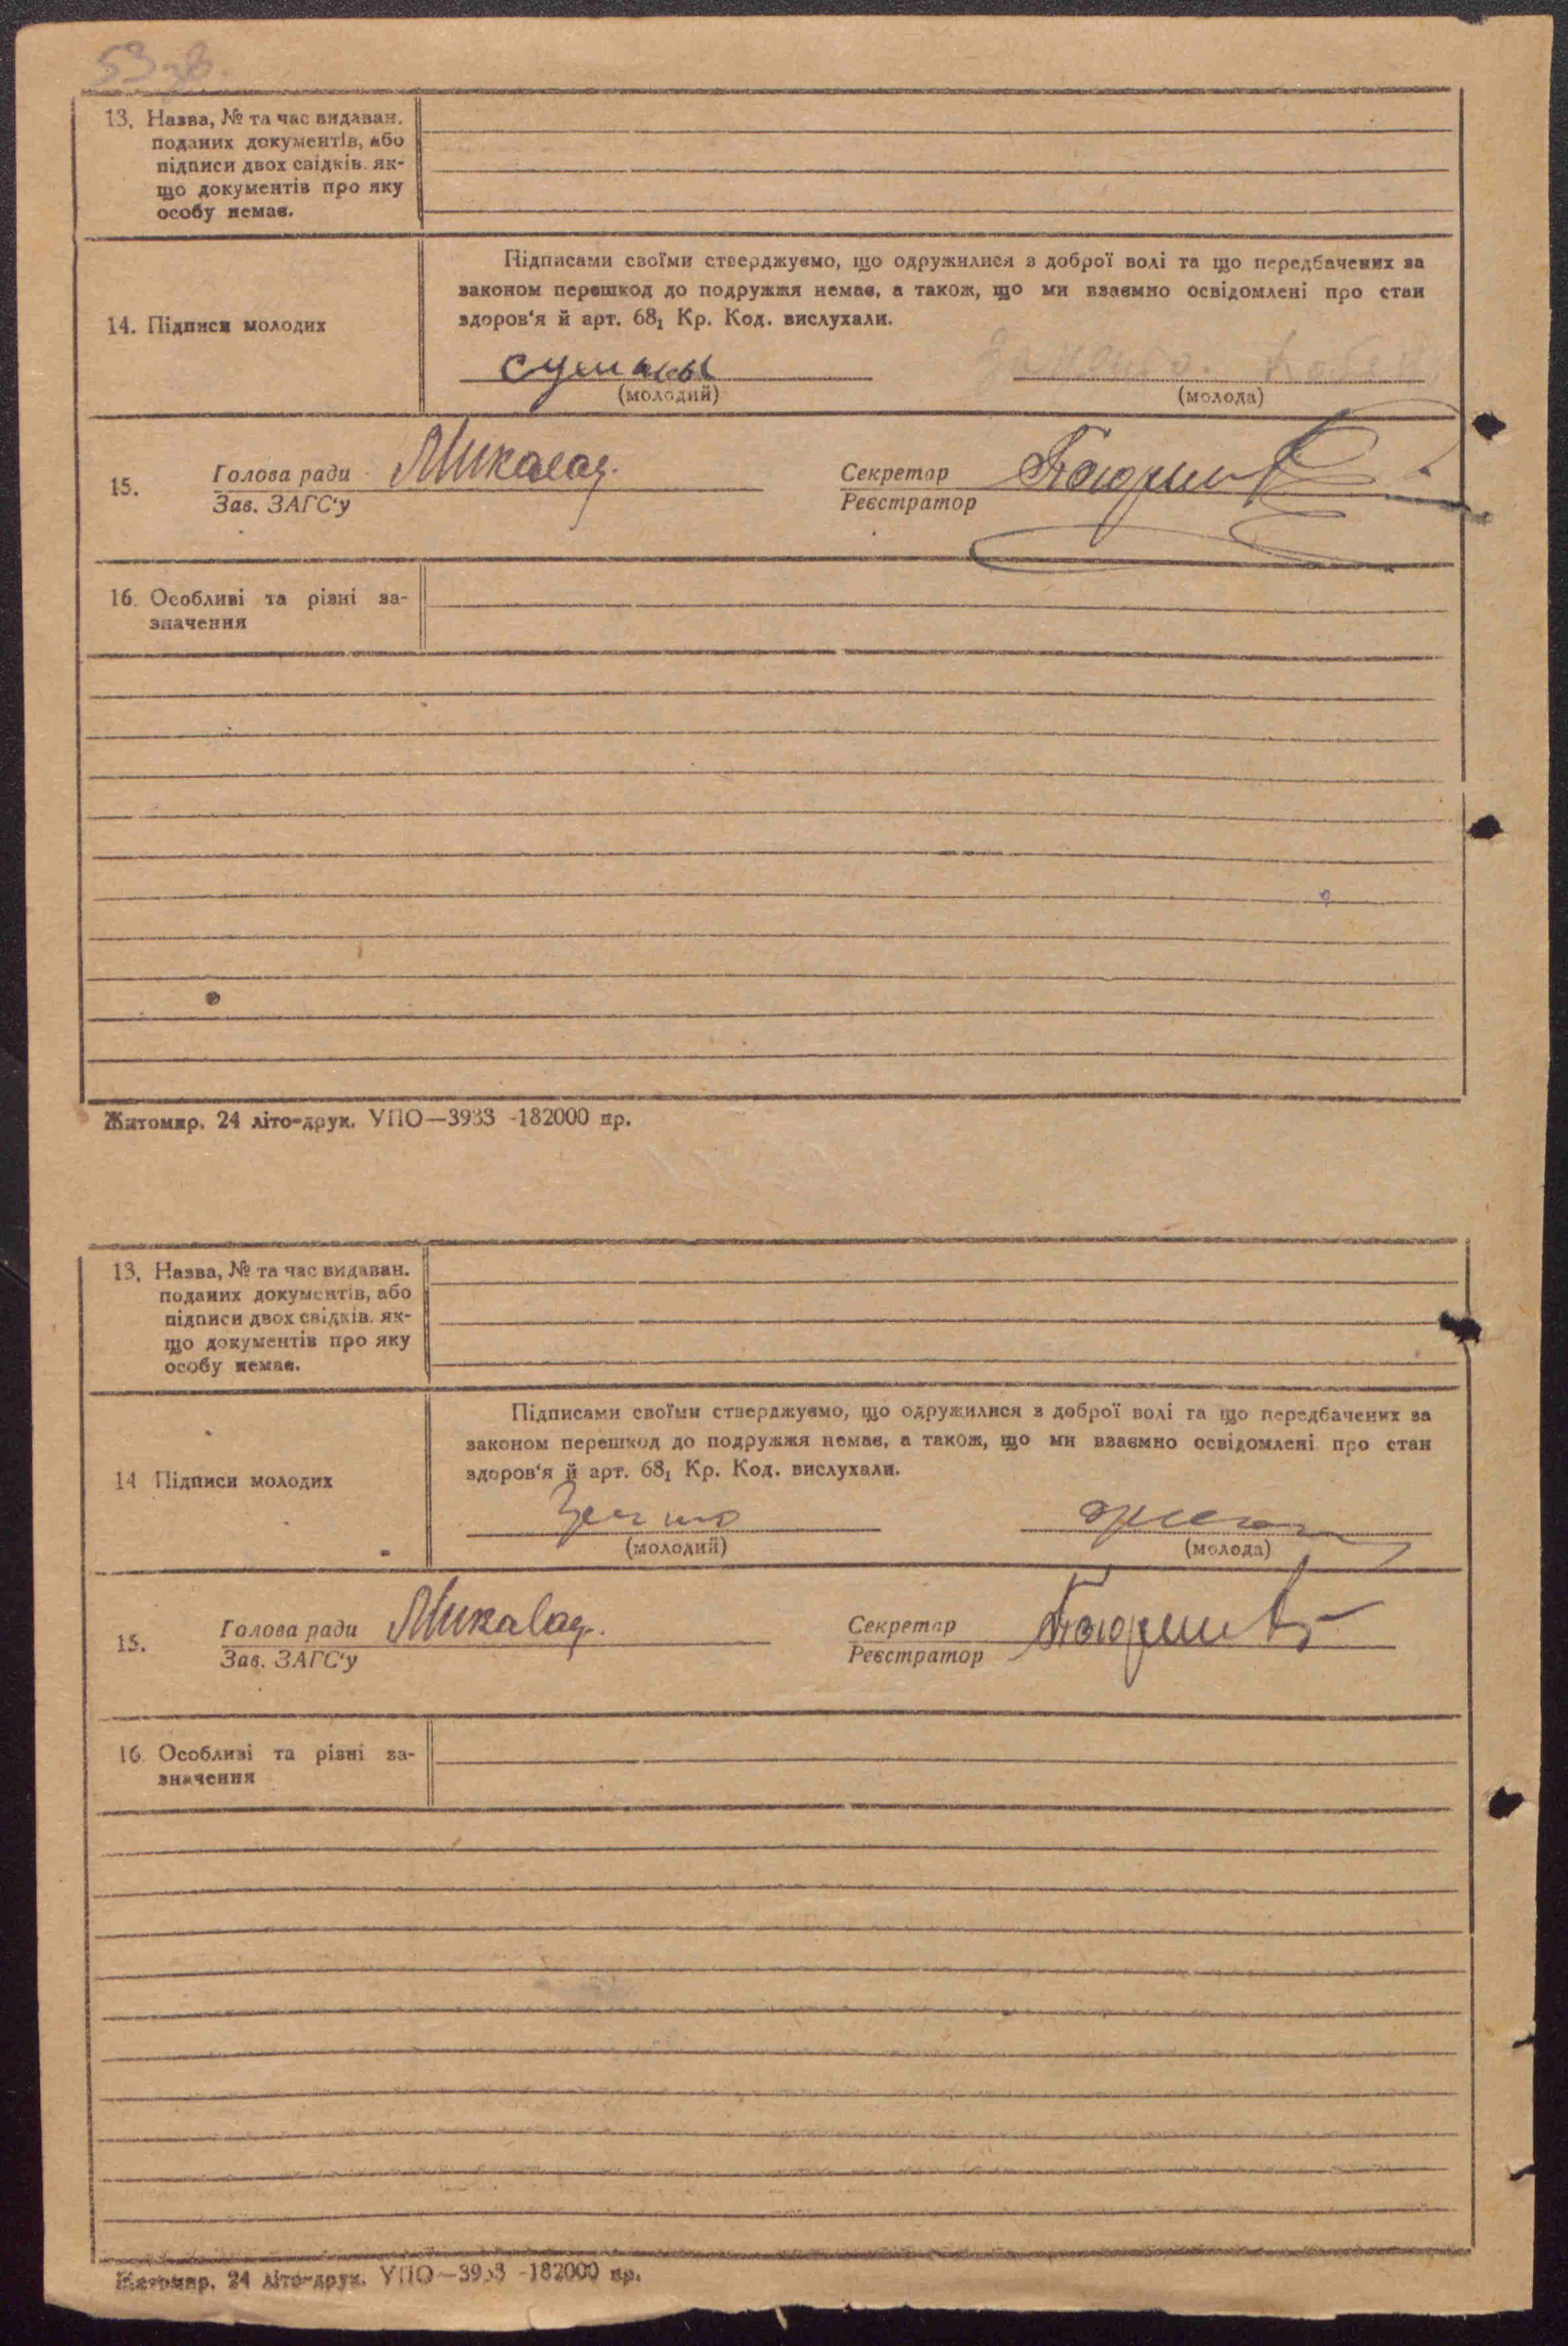 53 зв.
13. Назва, № та час видаван.
поданих документів, або
підписи двох свідків. як-
що документів про яку
особу немає.
Підписами своїми стверджуємо, що одружилися з доброї волі та що передбачених за
законом перешкод до подружжя немає, а також, що ми взаємно освідомлені про стан
14. Підписи молодих
здоров'я й арт. 68₁ Кр. Код. вислухали.
(молодий) (молода)
15. Голова ради Секретар
Зав. ЗАГС'у Реєстратор
16. Особливі та різні за-
значення
Житомир. 24 літо-друк. УПО—3933 -182000 пр.
13. Назва, № та час видаван.
поданих документів, або
підписи двох свідків. як-
що документів про яку
особу немає.
Підписами своїми стверджуємо, що одружилися з доброї волі та що передбачених за
законом перешкод до подружжя немає, а також, що ми взаємно освідомлені про стан
14 Підписи молодих
здоров'я й арт. 68₁ Кр. Код. вислухали.
(молодий) (молода)
15. Голова ради Секретар
Зав. ЗАГС'у Реєстратор
16. Особливі та різні за-
значення
Житомир. 24 літо-друк. УПО—3933 -182000 пр.